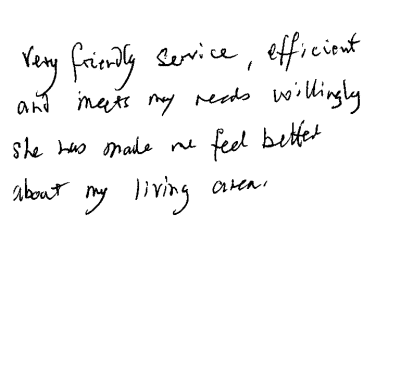 Very friendly service, efficient
and meets my needs willingly
she has made me feel better
about my living area.